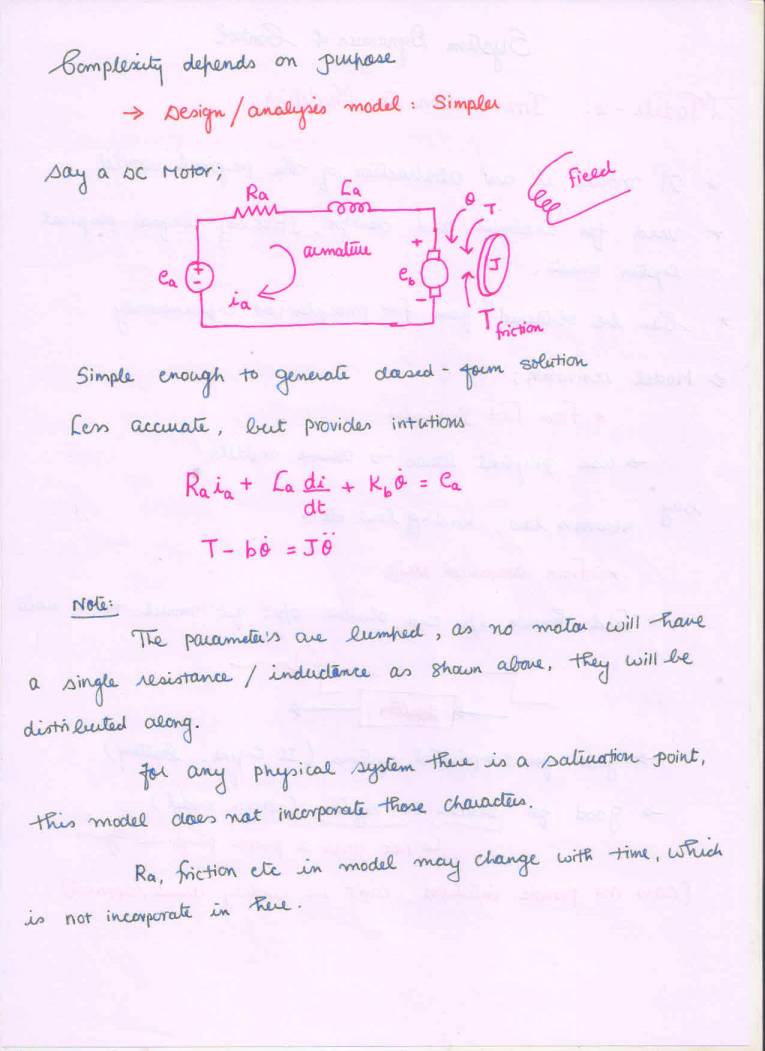 Complexity depends on purpose
→ Design / analysis model : Simpler
Say a DC Motor;
Ra
La
θ
T
field
ea
+
-
ia
armature
+
eb
-
J
T friction
Simple enough to generate closed-form solution
Less accurate, but provides intutions
Ra ia + La di/dt + Kb θ̇ = ea
T - bθ̇ = Jθ̈
Note:
The parameters are lumped, as no motor will have
a single resistance / inductance as shown above, they will be
distributed along.
for any physical system there is a saturation point,
this model does not incorporate those characters.
Ra, friction etc in model may change with time, which
is not incorporate in here.